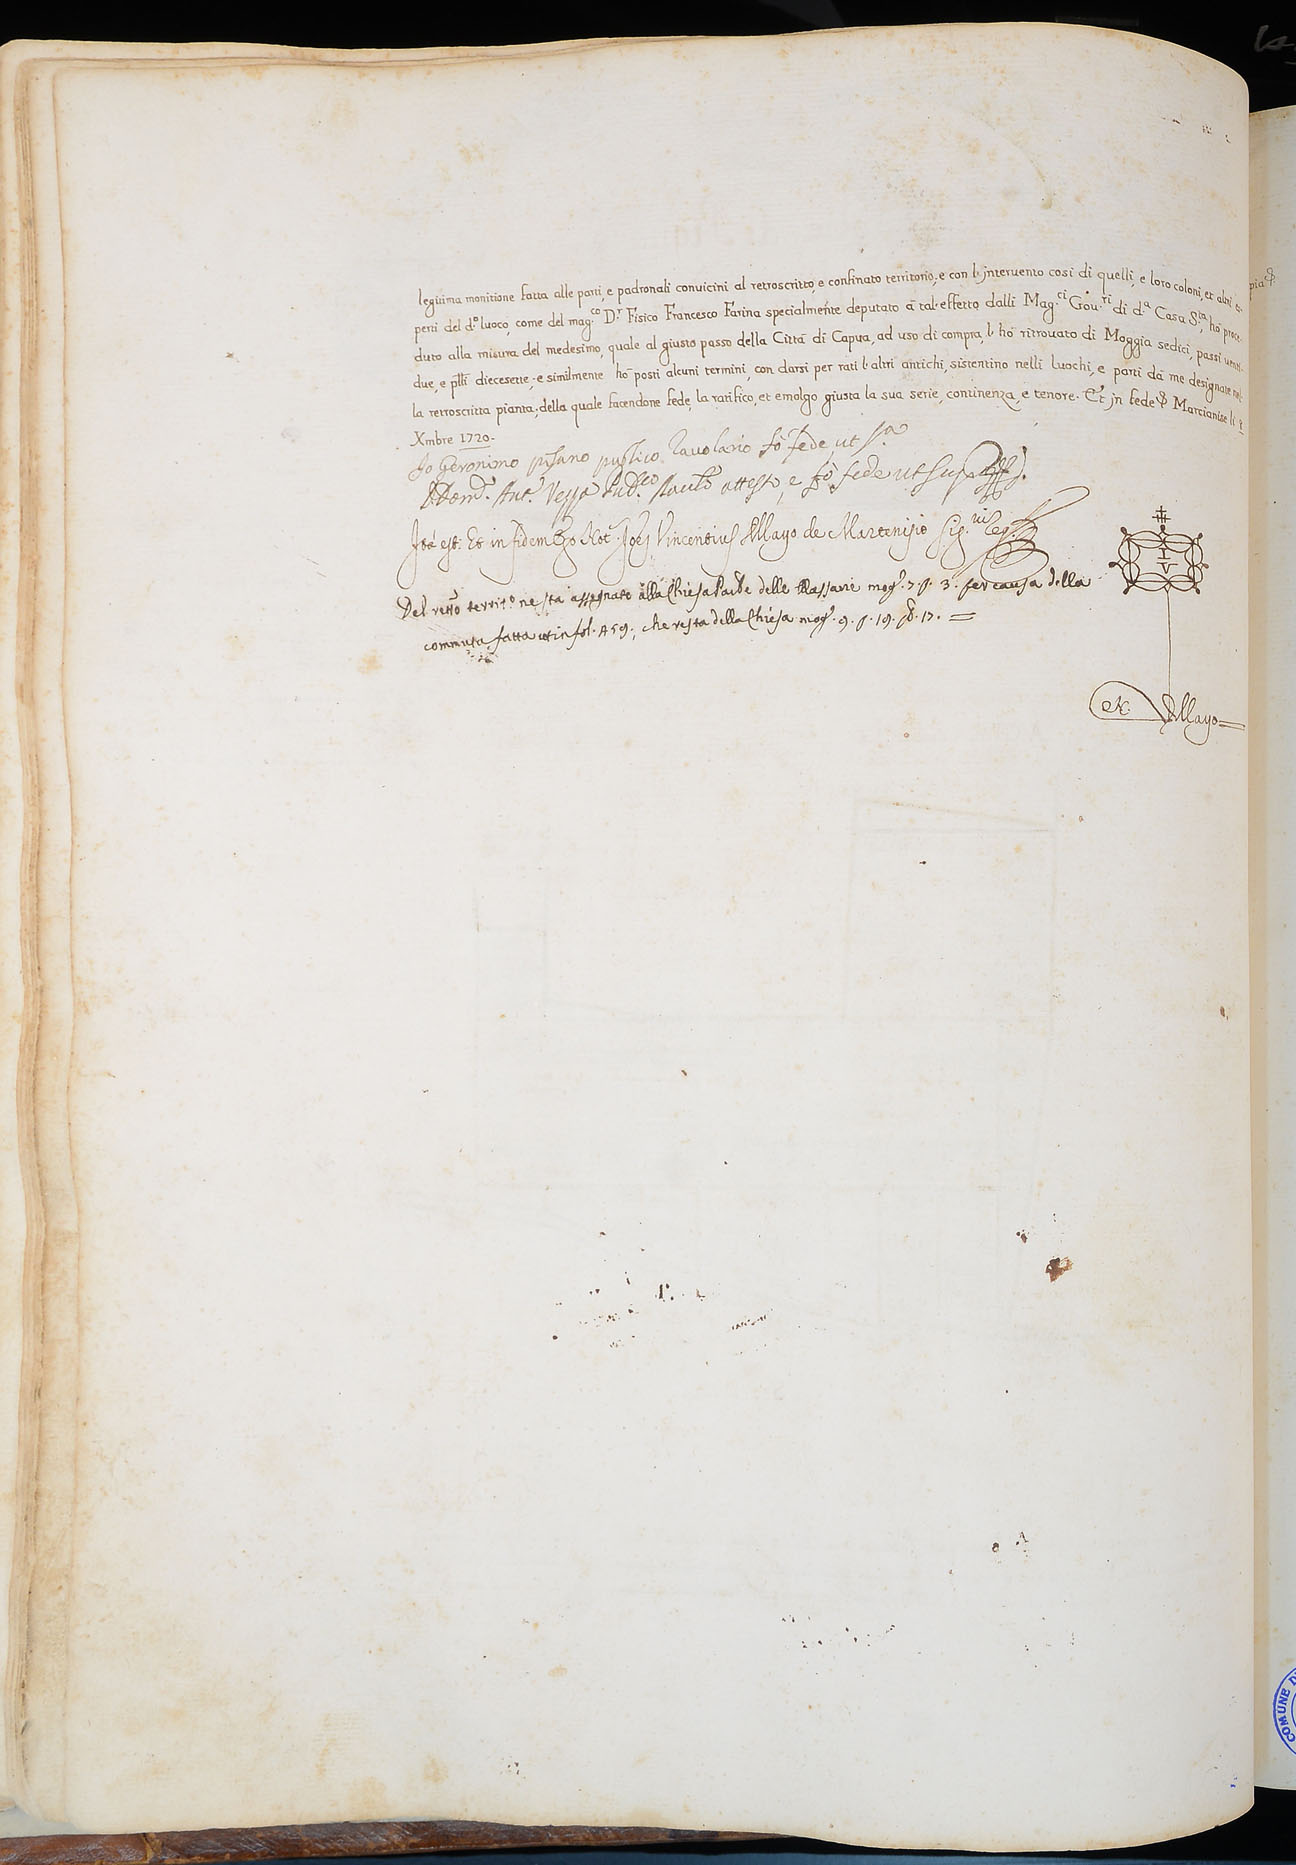 legitima monitione fatta alle parti, e padronali convicini al retroscritto, e confinato territorio, e con l'jntervento cosi di quelli, e loro coloni, et altri es-
perti del d.º luoco, come del mag.co D.r Fisico Francesco Farina specialmẽnte deputato à tal'effetto dalli Mag.ci Gou.ri di d.a Casa S.ta, hò proce-
duto alla misura del medesimo, quale al giusto passo della Città di Capua, ad uso di compra, l'hò ritrovato di Moggia sedici, passi venti-
due, e p̃lli diecesette, e similmente hò posti alcuni termini, con darsi per rati l'altri antichi, sistentino nelli luochi, e parti dà me designate nel-
la retroscritta pianta; della quale facendone fede, la ratifico, et emolgo giusta la sua serie, continenza, e tenore. Et jn fede Marcianise li 8
Xmbre 1720.
Jo Geronimo pisano publico Tavolario fò fede ut s.a
Ant.º Pub.co attesto, e fò fede ut sup.a
Ita est. Et in fidem Ego Not. Joẽs Vincentius Mayo de Martenisio sig.vi
Del retrò territ.º ne stà assegnato alla Chiesa Parle delle Massarie mog.a 7. p. 3. per causa della
commuta fatta ut in fol. 459., che resta della Chiesa mog.a 9. p. 19. p̃l. 17. =
I V
N. Mayo
COMUNE DI